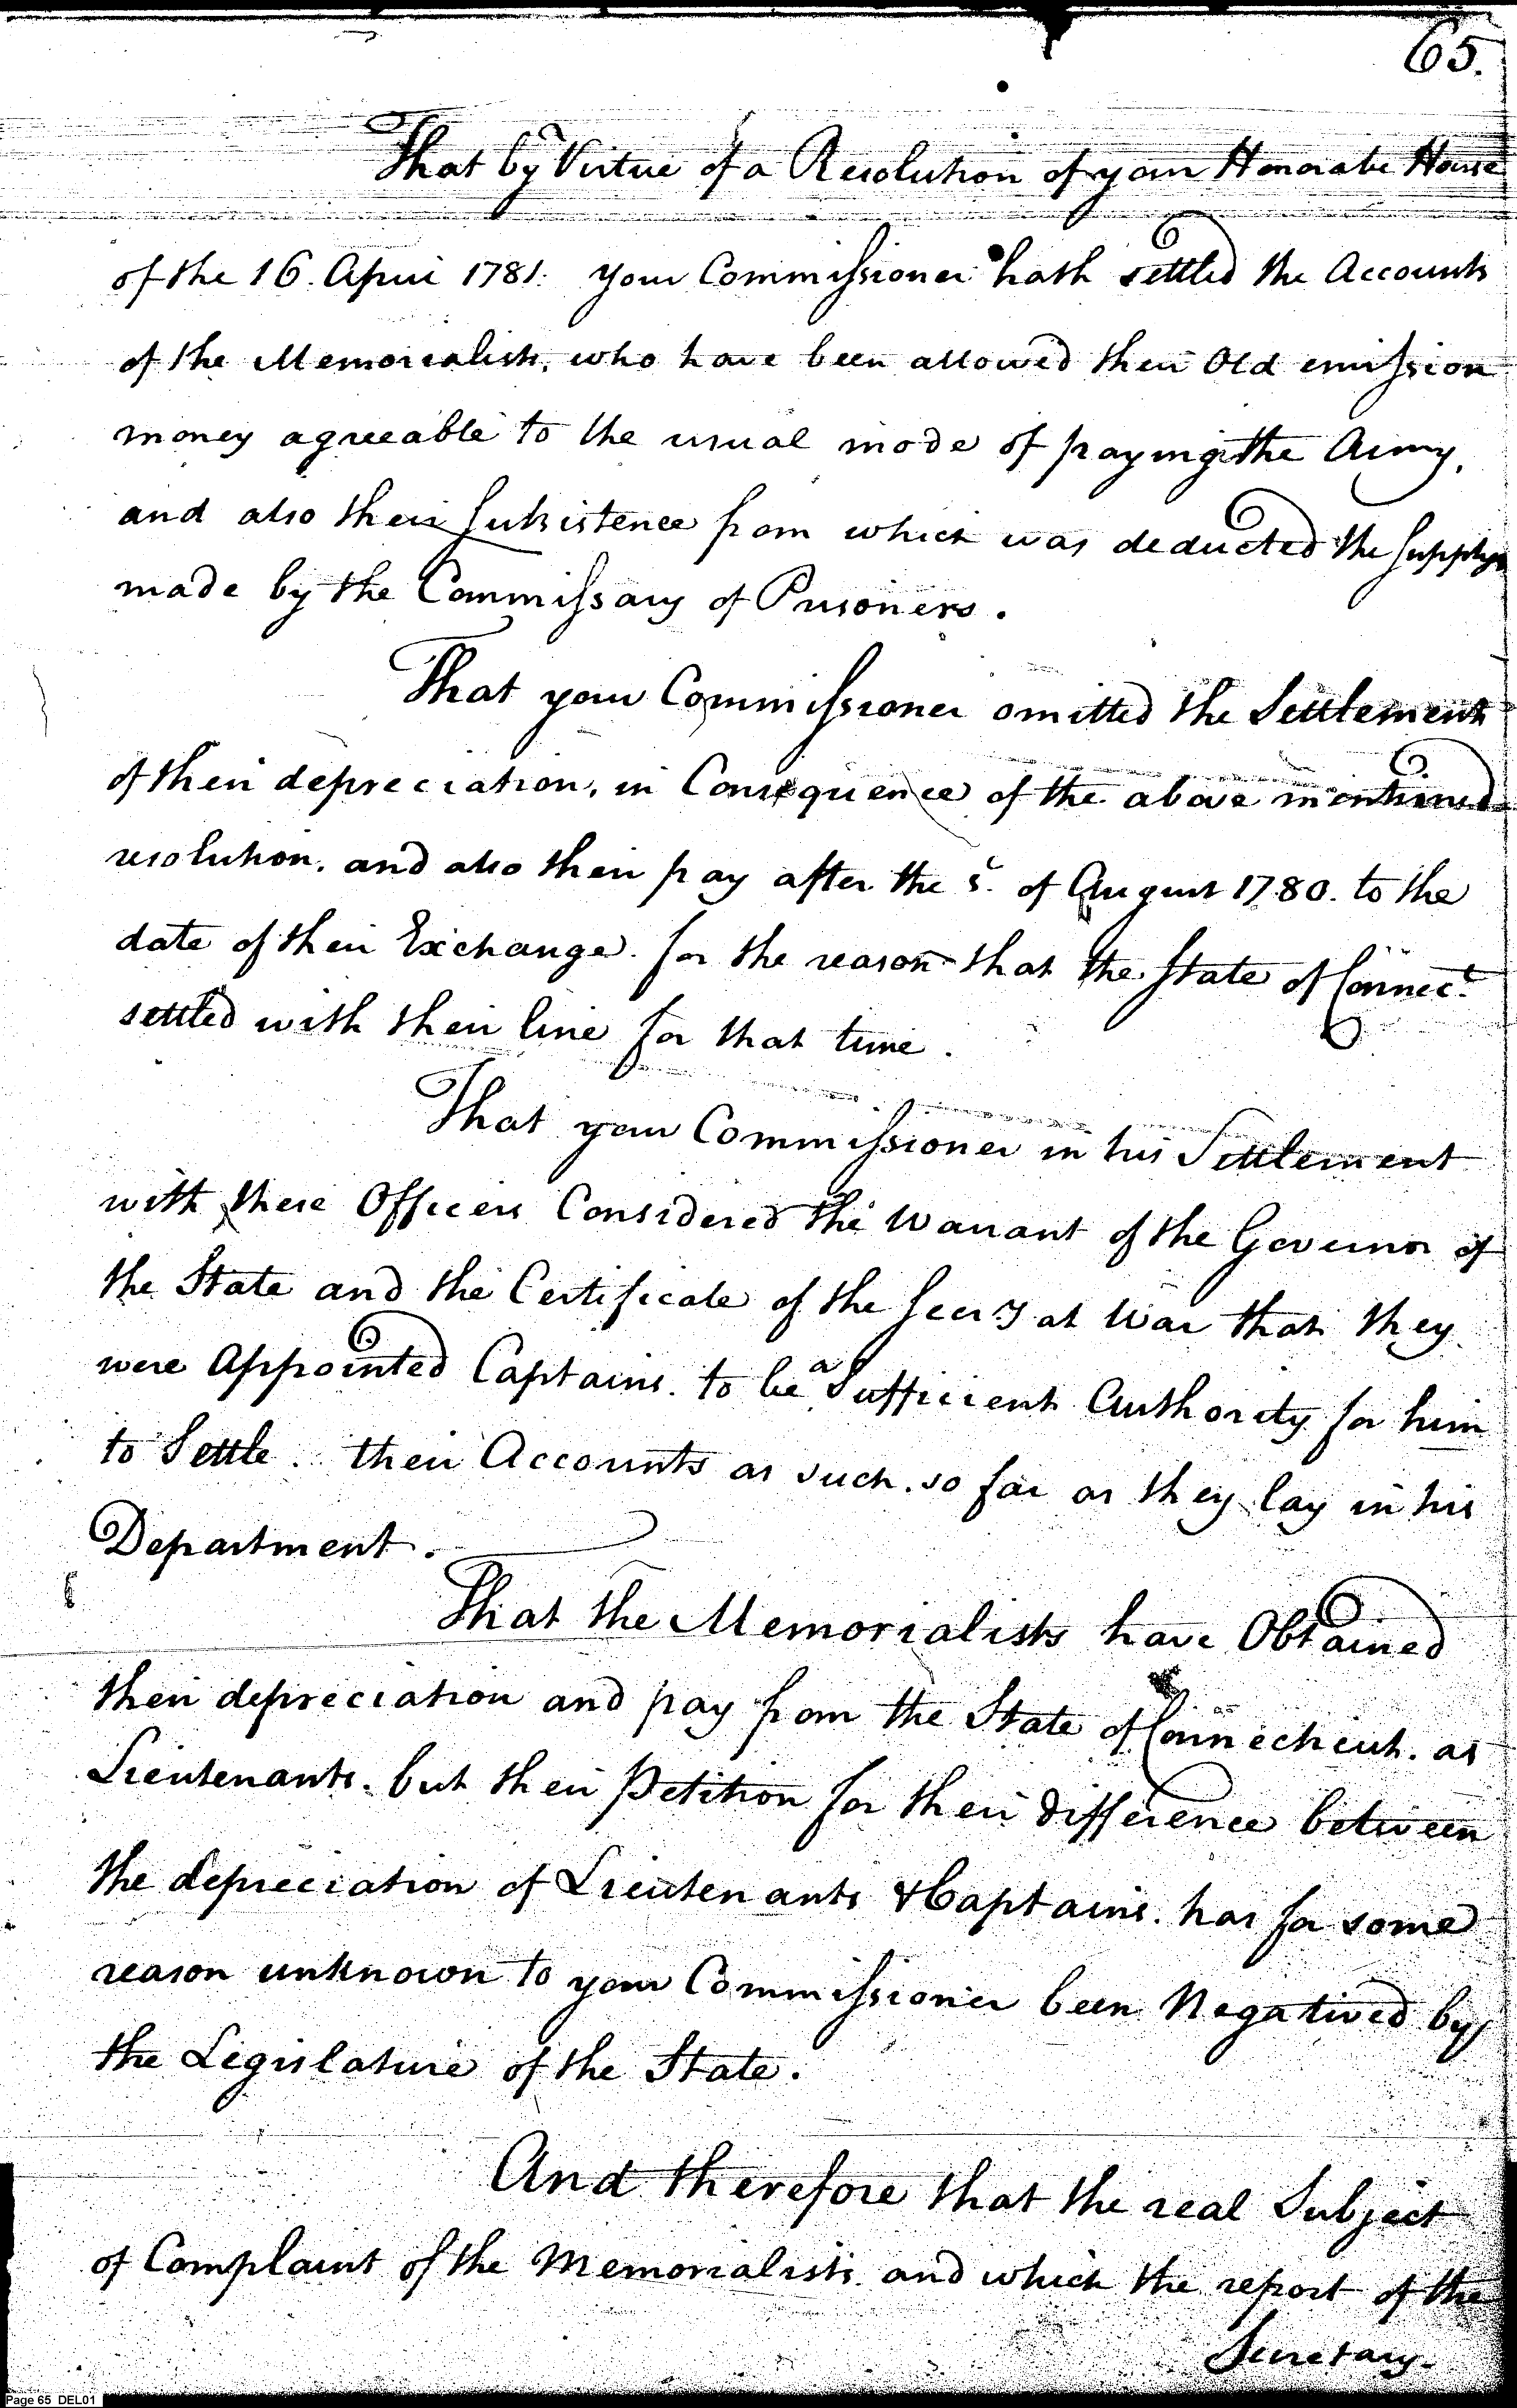 65.
That by Virtue of a Resolution of your Honorable House
of the 16. April 1781. your Commissioner hath settled the Accounts
of the Memorialists, who have been allowed their Old emission
money agreeable to the usual mode of paying the Army,
and also their Subsistence from which was deducted the supplys
made by the Commissary of Prisoners.
That your Commissioner omitted the Settlement
of their depreciation, in Consequence of the above mentioned
resolution, and also their pay after the of August 1780. to the
date of their Exchange. for the reason that the State of Connect.
settled with their line for that time.
That your Commissioner in his Settlement
with these Officers Considered the Warrant of the Governor of
the State and the Certificate of the Secry at War that they
were Appointed Captains. to be a Sufficient Authority for him
to Settle. their Accounts as such. so far as they lay in his
Department.
That the Memorialists have Obtained
their depreciation and pay from the State of Connecticut. as
Lieutenants. but their Petition for their difference between
the depreciation of Lieutenants & Captains. has for some
reason unknown to your Commissioner been Negatived by
the Legislature of the State.
And therefore that the real Subject
of Complaint of the Memorialists and which the report of the
Secretary.
Page 65 DEL01